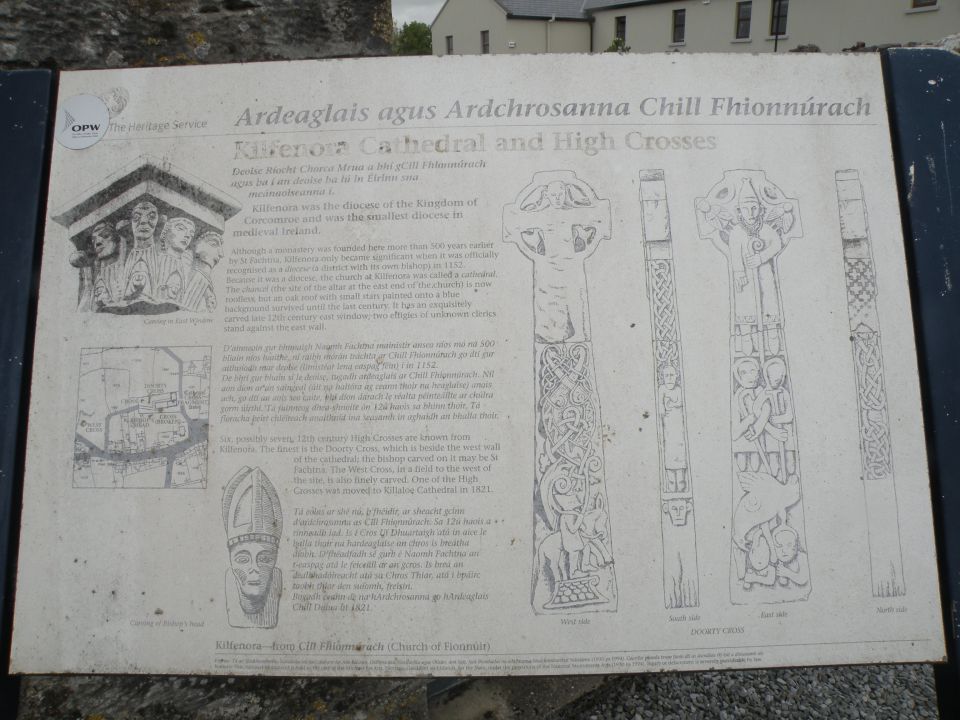 OPW
The Heritage Service
Ardeaglais agus Ardchrosanna Chill Fhionnúrach
Kilfenora Cathedral and High Crosses
Deoise Ríocht Chorca Mrua a bhí gCill Fhionnúrach
agus ba í an deoise ba lú in Éirinn sna
meánaoiseanna í.
Kilfenora was the diocese of the Kingdom of
Corcomroe and was the smallest diocese in
medieval Ireland.
Although a monastery was founded here more than 500 years earlier
by St Fachtna, Kilfenora only became significant when it was officially
recognised as a diocese (a district with its own bishop) in 1152.
Because it was a diocese, the church at Kilfenora was called a cathedral.
The chancel (the site of the altar at the east end of the church) is now
roofless, but an oak roof with small stars painted onto a blue
background survived until the last century. It has an exquisitely
carved late 12th century east window; two effigies of unknown clerics
stand against the east wall.
Carving in East Window
D'ainneoin gur bhunaigh Naomh Fachtna mainistir anseo níos mó ná 500
bliain níos luaithe, ní raibh morán tráchta ar Chill Fhionnúrach go dtí gur
aithníodh mar deoise (limistéar lena easpag féin) í in 1152.
De bhrí gur bhain sí le deoise, tugadh ardeaglais ar Chill Fhionnúrach. Níl
aon díon ar an saingeal (áit na haltóra ag ceann thoir na heaglaise) anois
ach, go dtí an aois seo caite, bhí díon darach le réalta péinteáilte ar chúlra
gorm uirthi. Tá fuinneog dhea-shnoite ón 12ú haois sa bhinn thoir. Tá
dhá chléireach anaithnid ina seasamh in aghaidh an bhalla thoir.
DOORTY
CROSS
CROSS
(BROKEN)
WEST
CROSS
Six, possibly seven, 12th century High Crosses are known from
Kilfenora. The finest is the Doorty Cross, which is beside the west wall
of the cathedral; the bishop carved on it may be St
Fachtna. The West Cross, in a field to the west of
the site, is also finely carved. One of the High
Crosses was moved to Killaloe Cathedral in 1821.
Tá eolas ar shé nó, b'fhéidir, ar sheacht gcinn
d'ardchrosanna as Cill Fhionnúrach. Sa 12ú haois a
rinneadh iad. Is í Cros Uí Dhuartaigh atá in aice le
balla thiar na hardeaglaise an chros is breátha
díobh. D'fhéadfadh sé gurb é Naomh Fachtna an
t-easpag atá le feiceáil ar an gcros. Is breá an
dealbhadóireacht atá sa Chros Thiar, atá i bpáirc
taobh thiar den suíomh, freisin.
Bogadh ceann de na hArdchrosanna go hArdeaglais
Chill Dalua in 1821.
Carving of Bishop's head
West side
South side
East side
North side
DOORTY CROSS
Kilfenora—from Cill Fhionnúrach (Church of Fionnúir)